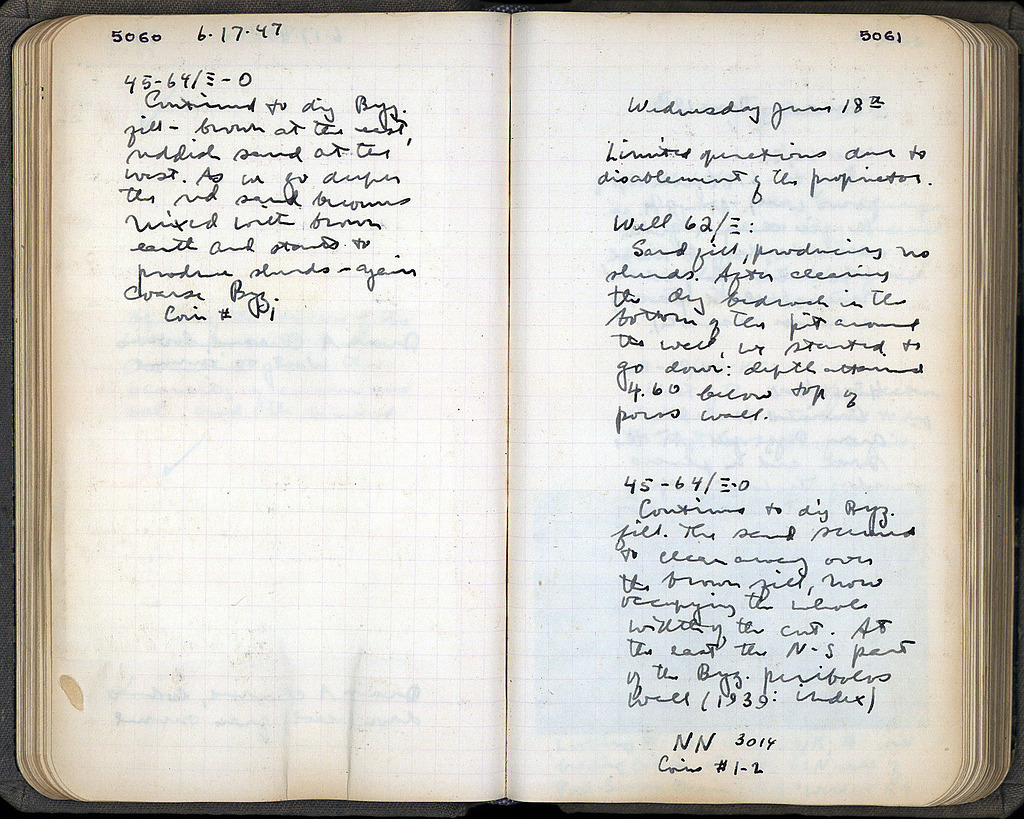 5060 6.17.47
45-64/Ξ-O
Continued to dig Byz.
fill - brown at the east,
reddish sand at the
west. As we go deeper
the red sand becomes
mixed with brown
earth and starts to
produce sherds - again
coarse Byz.
Coin # 1
5061
Wednesday June 18th
Limited operations due to
disablement of the proprietor.
Well 62/Ξ:
Sand fill, producing no
sherds. After clearing
the dry bedrock in the
bottom of the pit around
the well, we started to
go down: depth attained
4.60 below top of
poros wall.
45-64/Ξ-O
Continue to dig Byz.
fill. The sand seemed
to clean away over
the brown fill, now
occupying the whole
width of the cut. At
the east the N-S part
of the Byz. peribolos
wall (1939: index)
NN 3014
Coins #1-2